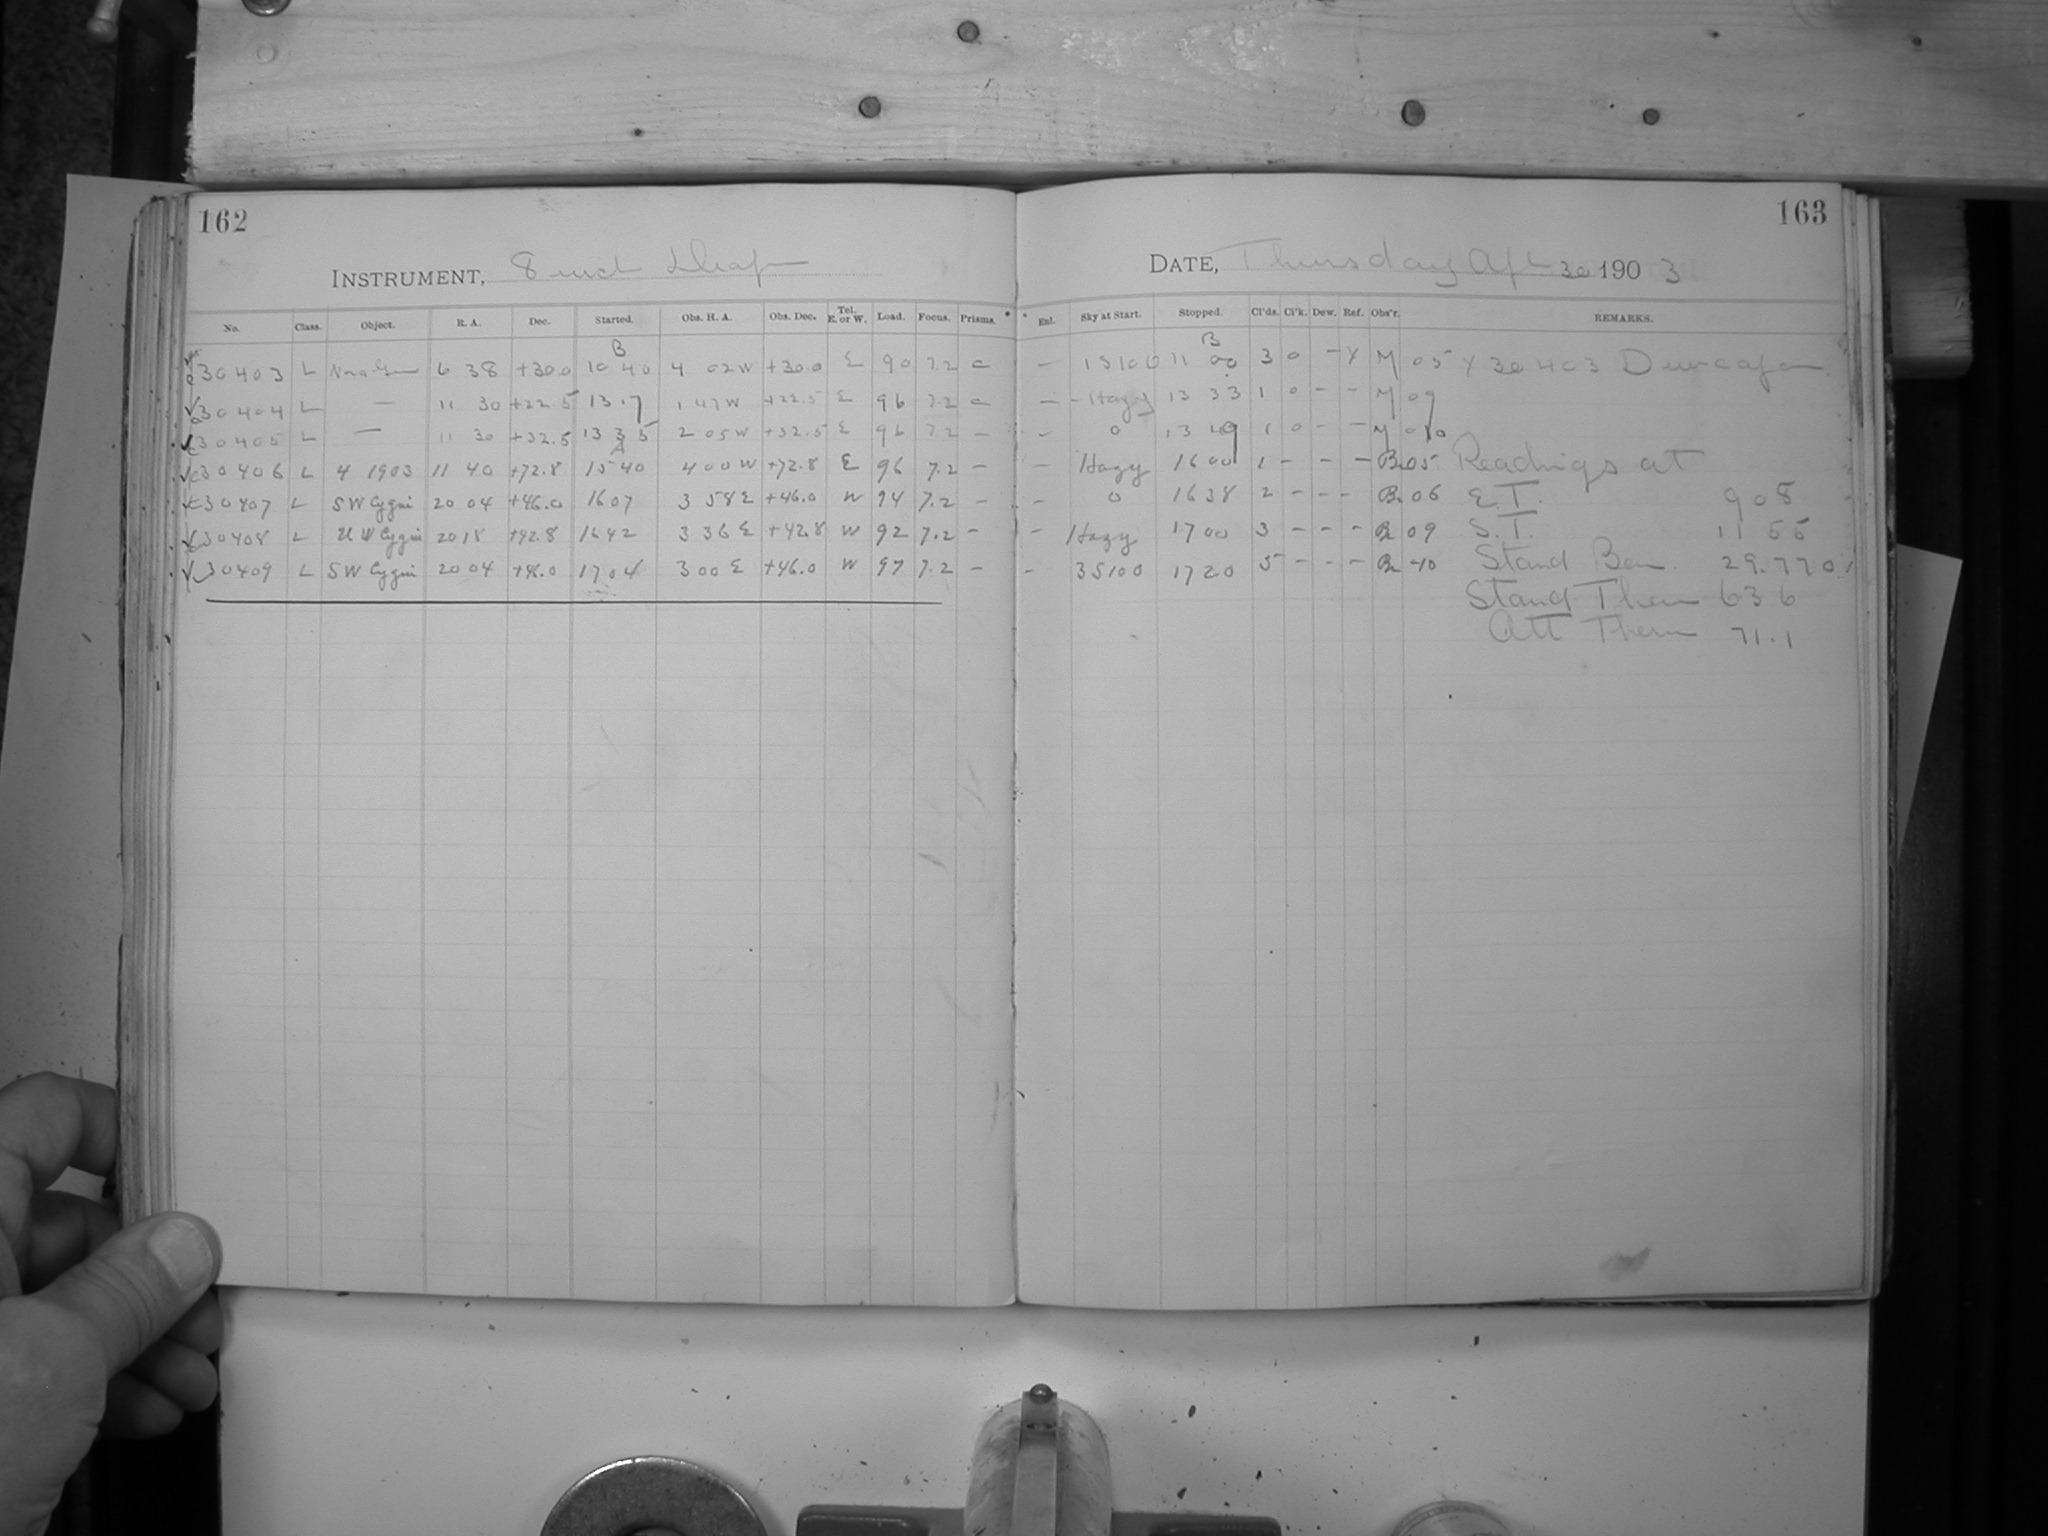 162
163
INSTRUMENT, 8 inch Drap
DATE, Thursday Apl 30 1903
No. Class. Object. R. A. Dec. Started. Obs. H. A. Obs. Dec. Tel. E. or W. Load. Focus. Prisms. Enl. Sky at Start. Stopped. Cl'ds. Cl'k. Dew. Ref. Obs'r. REMARKS.
B B
30403 L Nova Gem 6 38 +30.0 10 40 4 02 W +30.0 E 90 7.2 — — 1S100 11 00 3 0 - x M 05 x 30403
30404 L — 11 30 +22.5 13.7 1 47 W +22.5 E 96 7.2 — — Hazy 13 33 1 0 - - M 09
30405 L — 11 30 +32.5 13 35 2 05 W +32.5 E 96 7.2 — — 0 13 49 1 0 - - M
A
30406 L 4 1903 11 40 +72.8 15 40 4 00 W +72.8 E 96 7.2 — — Hazy 16 00 1 - - - B 05 Readings at
30407 L SW Cygni 20 04 +46.0 16 07 3 58 E +46.0 W 94 7.2 — — 0 16 38 2 - - - B 06 E.T. 9 08
30408 L UW Cygni 20 18 +42.8 16 42 3 36 E +42.8 W 92 7.2 — — Hazy 17 00 3 - - - B 09 S.T. 11 55
30409 L SW Cygni 20 04 +46.0 17 04 3 00 E +46.0 W 97 7.2 — — 3S100 17 20 5 - - - B -10 Stand Bar. 29.770
Stand Ther 63 6
Att Therm 71.1